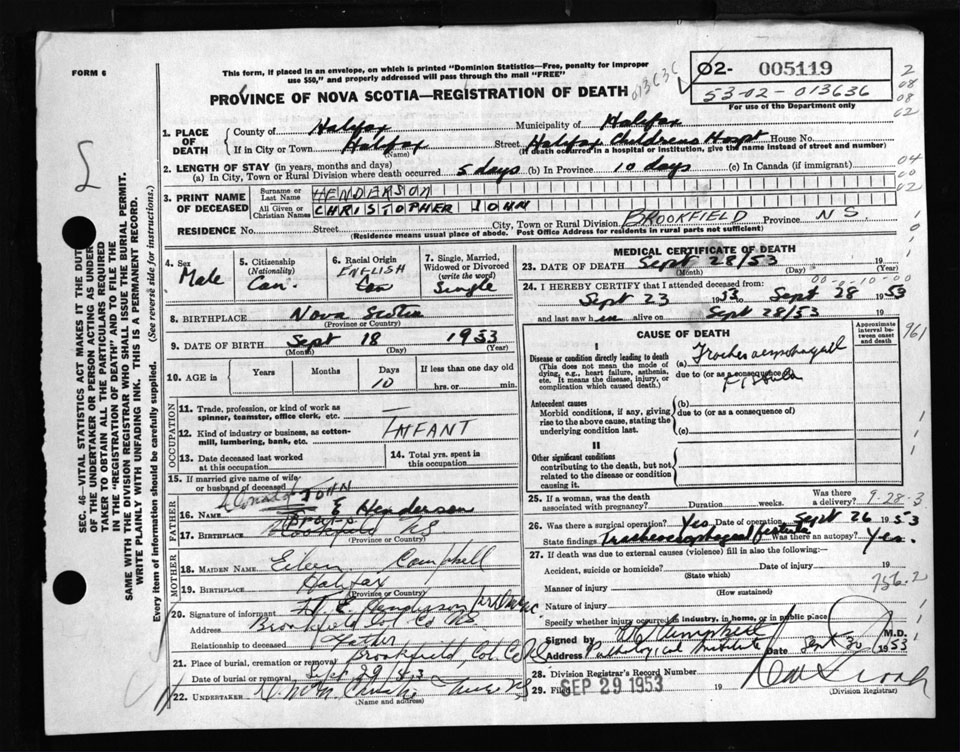 FORM 6
This form, if placed in an envelope, on which is printed "Dominion Statistics—Free, penalty for improper
use $50," and properly addressed will pass through the mail "FREE"
PROVINCE OF NOVA SCOTIA—REGISTRATION OF DEATH
013636
02- 005119
53-02-013636
For use of the Department only
2
08
08
02
04
00
02
SEC. 46—VITAL STATISTICS ACT MAKES IT THE DUTY
OF THE UNDERTAKER OR PERSON ACTING AS UNDER-
TAKER TO OBTAIN ALL THE PARTICULARS REQUIRED
IN THE "REGISTRATION OF DEATH" AND TO FILE THE
SAME WITH THE DIVISION REGISTRAR WHO SHALL ISSUE THE BURIAL PERMIT.
WRITE PLAINLY WITH UNFADING INK. THIS IS A PERMANENT RECORD.
Every item of information should be carefully supplied. (See reverse side for instructions.)
1. PLACE OF DEATH
County of Halifax Municipality of Halifax
If in City or Town Halifax Street Halifax Childrens Hospt House No.
(Name) (If death occurred in a hospital or institution, give the name instead of street and number)
2. LENGTH OF STAY (in years, months and days)
(a) In City, Town or Rural Division where death occurred 5 days (b) In Province 10 days (c) In Canada (if immigrant)
3. PRINT NAME OF DECEASED
Surname or Last Name HENDERSON
All Given or Christian Names CHRISTOPHER JOHN
RESIDENCE No. Street City, Town or Rural Division BROOKFIELD Province NS
(Residence means usual place of abode. Post Office Address for residents in rural parts not sufficient)
4. Sex Male
5. Citizenship (Nationality) Can.
6. Racial Origin ENGLISH Can
7. Single, Married, Widowed or Divorced (write the word) Single
8. BIRTHPLACE Nova Scotia
(Province or Country)
9. DATE OF BIRTH Sept 18 1953
(Month) (Day) (Year)
10. AGE in Years Months Days 10 If less than one day old hrs. or min.
OCCUPATION
11. Trade, profession, or kind of work as spinner, teamster, office clerk, etc. —
12. Kind of industry or business, as cotton-mill, lumbering, bank, etc. INFANT
13. Date deceased last worked at this occupation
14. Total yrs. spent in this occupation
15. If married give name of wife or husband of deceased
FATHER
Donald JOHN
16. Name E Henderson
17. Birthplace Brookfield NS
(Province or Country)
MOTHER
18. MAIDEN NAME Eileen Campbell
19. BIRTHPLACE Halifax
(Province or Country)
20. Signature of informant Henderson
Address Brookfield Col. Co NS
Relationship to deceased Father
21. Place of burial, cremation or removal Brookfield Col. Co NS
Date of burial or removal Sept 29/53
22. UNDERTAKER
(Name and address)
MEDICAL CERTIFICATE OF DEATH
23. DATE OF DEATH Sept 28/53 19
(Month) (Day) (Year)
24. I HEREBY CERTIFY that I attended deceased from:
Sept 23 1953 to Sept 28 1953
and last saw h im alive on Sept 28/53 19
CAUSE OF DEATH
Approximate interval between onset and death
961
I
Disease or condition directly leading to death
(This does not mean the mode of dying, e.g., heart failure, asthenia, etc. It means the disease, injury, or complication which caused death.)
(a)
due to (or as a consequence of)
Antecedent causes
Morbid conditions, if any, giving rise to the above cause, stating the underlying condition last.
(b)
due to (or as a consequence of)
(c)
II
Other significant conditions
contributing to the death, but not related to the disease or condition causing it.
25. If a woman, was the death associated with pregnancy? Duration weeks. Was there a delivery? 9-28-3
26. Was there a surgical operation? Yes Date of operation Sept 26 1953
State findings Tracheoesophageal fistula Was there an autopsy? Yes.
27. If death was due to external causes (violence) fill in also the following:—
Accident, suicide or homicide? Date of injury 19
(State which)
756.2
Manner of injury
(How sustained)
Nature of injury
Specify whether injury occurred in industry, in home, or in public place
Signed by M.D.
Address Pathological Institute Date Sept 30 1953
28. Division Registrar's Record Number
29. Filed SEP 29 1953 19
(Division Registrar)